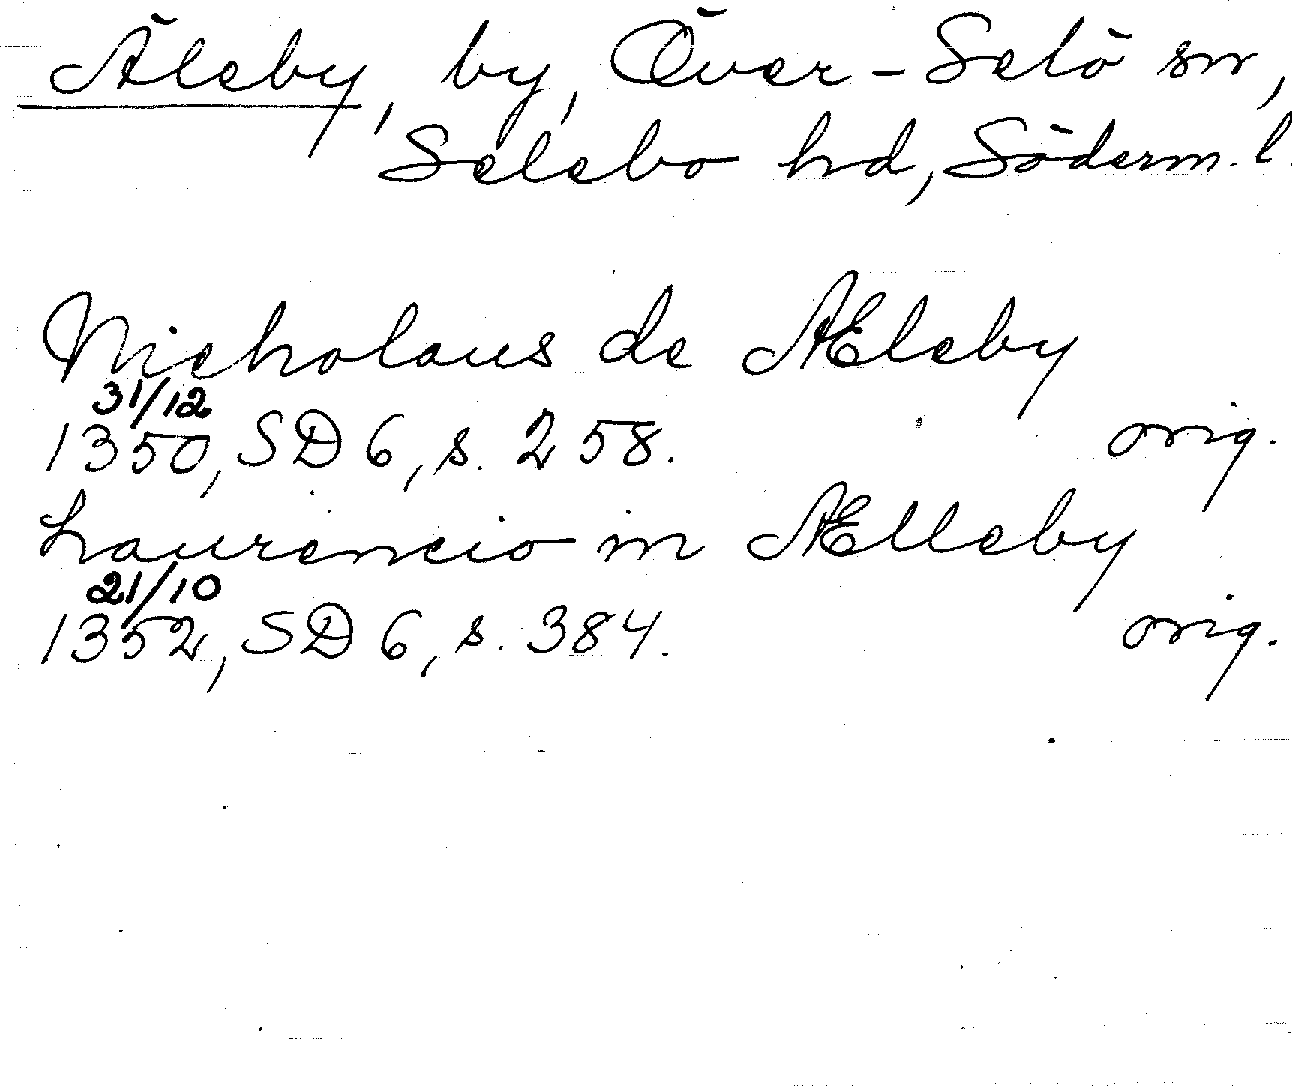 Äleby, by, Över-Selö sn,
Selebo hd, Söderm. l.
Nicholaus de Æleby
31/12
1350, SD 6, s. 258. orig.
Laurencio in Ælleby
21/10
1352, SD 6, s. 384. orig.